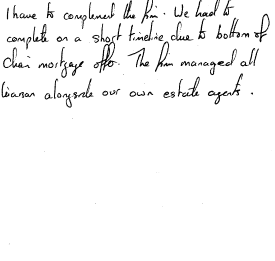 I have to complement the firm. We had to
complete on a short timeline due to bottom of
chain mortgage offer. The firm managed all
liaison alongside our own estate agents.